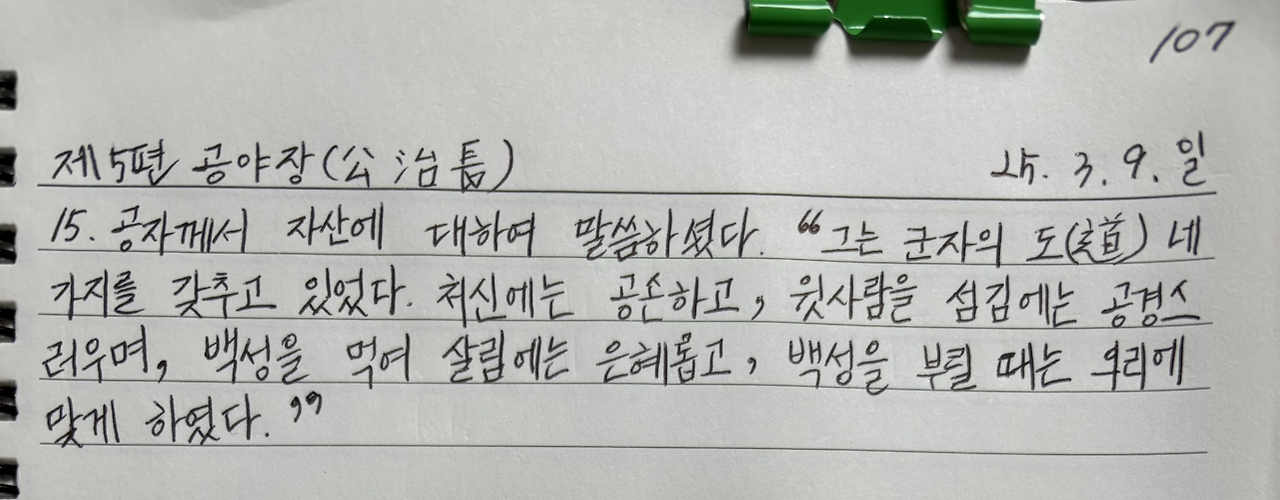 107
제5편 공야장(公治長) 25. 3. 9. 일
15. 공자께서 자산에 대하여 말씀하셨다. “그는 군자의 도(道) 네
가지를 갖추고 있었다. 처신에는 공손하고, 윗사람을 섬김에는 공경스
러우며, 백성을 먹여 살림에는 은혜롭고, 백성을 부릴 때는 의리에
맞게 하였다.”